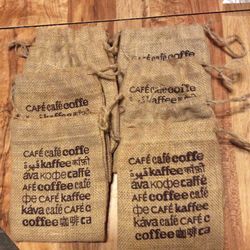 CAFÉ café coffe
CAFÉ café coffe
CAFÉ café coffe
kaffee
ava кофе caffè
AFÉ coffee café
фе CAFÉ kaffee
káva café CAFÉ C
coffee 咖啡 ca
CAFÉ café coffe
قهوة kaffee
ava кофе caffè
AFÉ café coffee
фе CAFÉ kaffee
káva café CAFÉ c
coffee 咖啡 ca